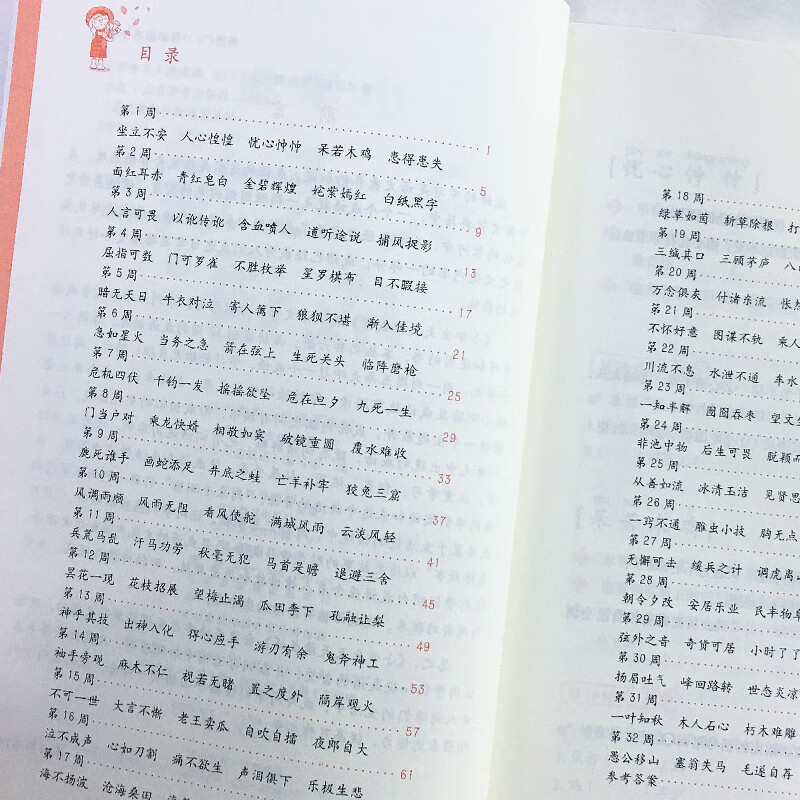 目录
第1周 1
坐立不安 人心惶惶 忧心忡忡 呆若木鸡 患得患失
第2周 5
面红耳赤 青红皂白 金碧辉煌 姹紫嫣红 白纸黑字
第3周 9
人言可畏 以讹传讹 含血喷人 道听途说 捕风捉影
第4周 13
屈指可数 门可罗雀 不胜枚举 星罗棋布 目不暇接
第5周 17
暗无天日 牛衣对泣 寄人篱下 狼狈不堪 渐入佳境
第6周 21
急如星火 当务之急 箭在弦上 生死关头 临阵磨枪
第7周 25
危机四伏 千钧一发 摇摇欲坠 危在旦夕 九死一生
第8周 29
门当户对 乘龙快婿 相敬如宾 破镜重圆 覆水难收
第9周 33
鹿死谁手 画蛇添足 井底之蛙 亡羊补牢 狡兔三窟
第10周 37
风调雨顺 风雨无阻 看风使舵 满城风雨 云淡风轻
第11周 41
兵荒马乱 汗马功劳 秋毫无犯 马首是瞻 退避三舍
第12周 45
昙花一现 花枝招展 望梅止渴 瓜田李下 孔融让梨
第13周 49
神乎其技 出神入化 得心应手 游刃有余 鬼斧神工
第14周 53
袖手旁观 麻木不仁 视若无睹 置之度外 隔岸观火
第15周 57
不可一世 大言不惭 老王卖瓜 自吹自擂 夜郎自大
第16周 61
泣不成声 心如刀割 痛不欲生 声泪俱下 乐极生悲
第17周
海不扬波 沧海桑田
第18周
绿草如茵 斩草除根 打
第19周
三缄其口 三顾茅庐 八
第20周
万念俱灰 付诸东流 怅然
第21周
不怀好意 图谋不轨 乘人
第22周
川流不息 水泄不通 车水
第23周
一知半解 囫囵吞枣 望文生
第24周
非池中物 后生可畏 脱颖而
第25周
从善如流 冰清玉洁 见贤思
第26周
一窍不通 雕虫小技 胸无点
第27周
无懈可击 缓兵之计 调虎离
第28周
朝令夕改 安居乐业 民丰物阜
第29周
弦外之音 奇货可居 小时了了
第30周
扬眉吐气 峰回路转 世态炎凉
第31周
一叶知秋 木人石心 朽木难雕
第32周
愚公移山 塞翁失马 毛遂自荐
参考答案